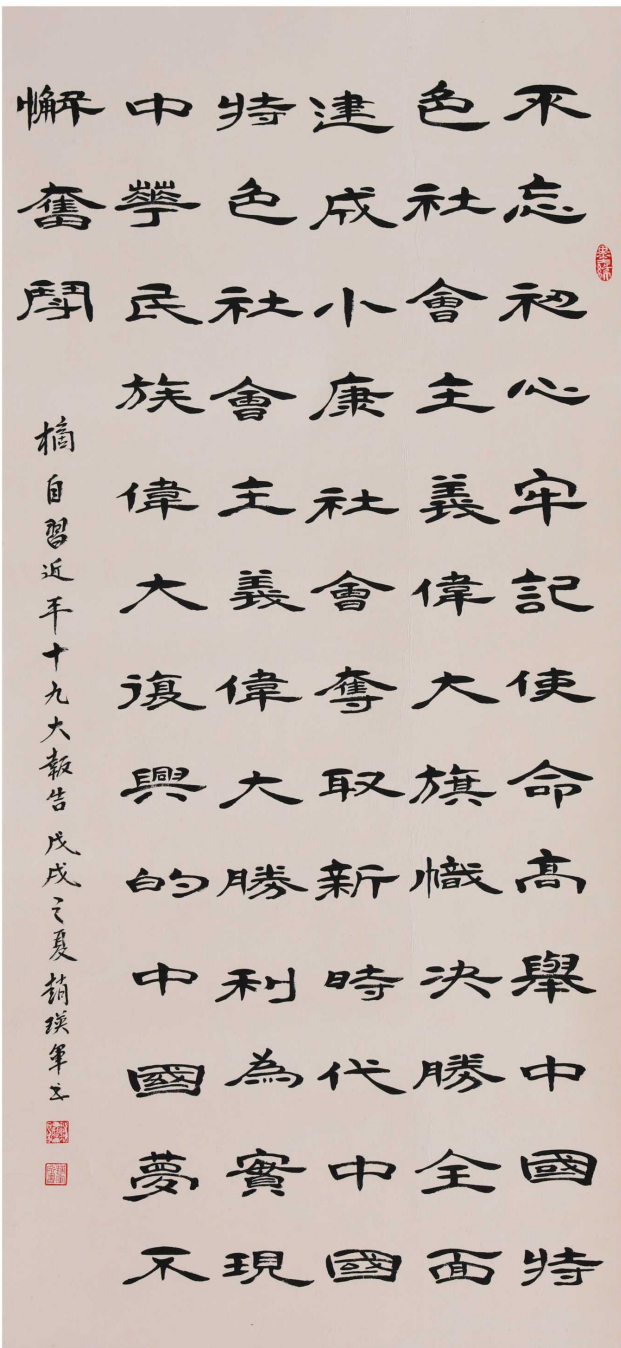 不忘初心牢記使命高舉中國特
色社會主義偉大旗幟決勝全面
建成小康社會奪取新時代中國
特色社會主義偉大勝利為實現
中華民族偉大復興的中國夢不
懈奮鬥
摘自習近平十九大報告 戊戌之夏 趙瑛軍書